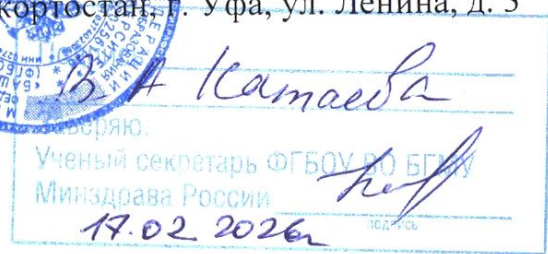 кортостан, г. Уфа, ул. Ленина, д. 3
В А Катаева
заверяю:
Ученый секретарь ФГБОУ ВО БГМУ
Минздрава России
подпись
17.02 2026г